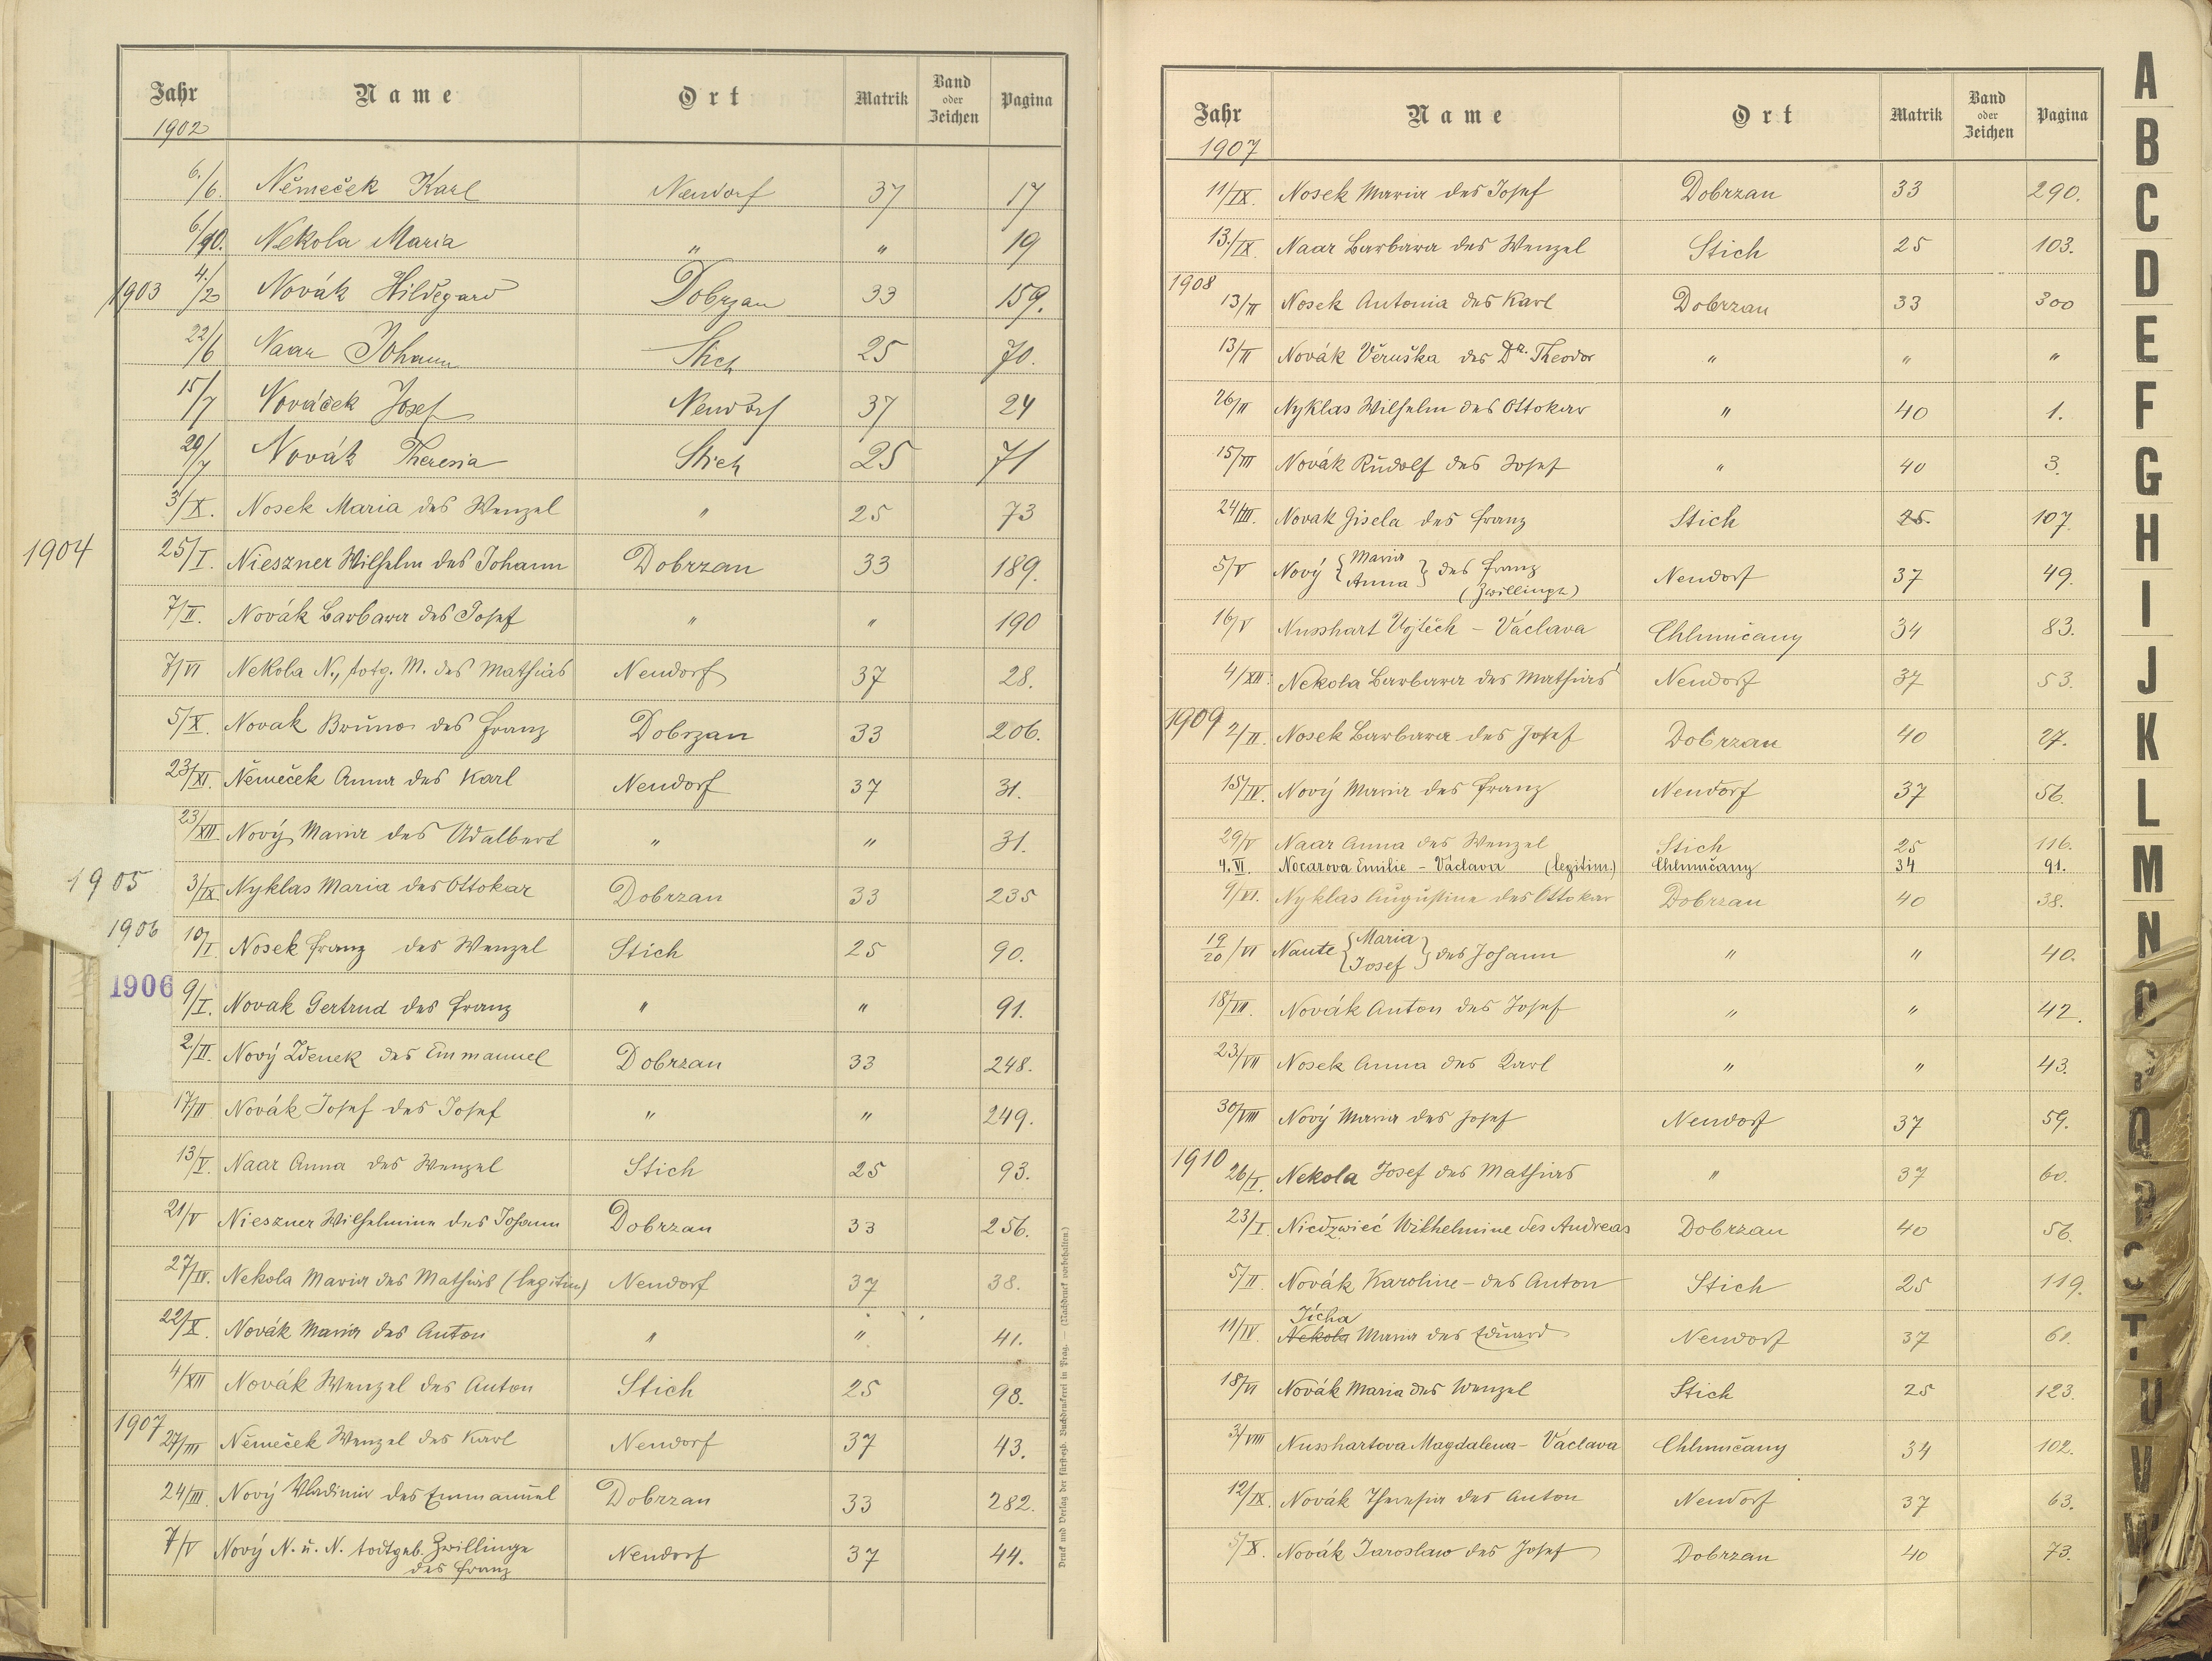 Jahr Name Ort Matrik Band oder Zeichen Pagina
1902
6./6. Němeček Karl Neudorf 37 17
6/10. Nekola Maria " " 19
1903 4./2 Novák Hildegard Dobrzan 33 159.
22/6 Naar Johann Stich 25 70.
15/7 Nováček Josef Neudorf 37 24
29/7 Novák Theresia Stich 25 71
3/X. Nosek Maria des Wenzel " 25 73
1904 25/I. Nieszner Wilhelm des Johann Dobrzan 33 189.
7/II. Novák Barbara des Josef " " 190
7/VI Nekola N., totg. M. des Mathias Neudorf 37 28.
5/X. Novak Bruno des Franz Dobrzan 33 206.
23/XI. Němeček Anna des Karl Neudorf 37 31.
23/XII. Nový Maria des Adalbert " " 31.
1905 3/IX. Nyklas Maria des Ottokar Dobrzan 33 235
1906 10/I. Nosek Franz des Wenzel Stich 25 90.
1906 9/I. Novak Gertrud des Franz " " 91.
2./II. Nový Zdenek des Emmanuel Dobrzan 33 248.
17/II Novák Josef des Josef " " 249.
13/V. Naar Anna des Wenzel Stich 25 93.
21/V Nieszner Wilhelmine des Johann Dobrzan 33 256.
27/IV. Nekola Maria des Mathias (legitim) Neudorf 37 38.
22/X. Novák Maria des Anton " " 41.
4/XII Novák Wenzel des Anton Stich 25 98.
1907 27/III Němeček Wenzel des Karl Neudorf 37 43.
24/III. Nový Vladimir des Emmanuel Dobrzan 33 282.
7/V Nový N. u. N. todtgeb. Zwillinge Neudorf 37 44.
des Franz
Druck und Verlag der fürst-erzb. Buchdruckerei in Prag. — (Nachdruck vorbehalten.)
Jahr Name Ort Matrik Band oder Zeichen Pagina
1907
11/IX. Nosek Maria des Josef Dobrzan 33 290.
13./IX. Naar Barbara des Wenzel Stich 25 103.
1908
13/II Nosek Antonia des Karl Dobrzan 33 300
13/II Novák Věruška des Dr. Theodor " " "
26/II Nyklas Wilhelm des Ottokar " 40 1.
15/III Novák Rudolf des Josef " 40 3.
24/III. Novak Gisela des Franz Stich 25. 107.
5/V Nový { Maria Anna } des Franz Neudorf 37 49.
(Zwillinge)
16/V Nusshart Vojtěch – Václava Chlumčany 34 83.
4/XII. Nekola Barbara des Mathias Neudorf 37 53.
1909 2/II. Nosek Barbara des Josef Dobrzan 40 27.
15/IV. Nový Maria des Franz Neudorf 37 56.
29/V Naar Anna des Wenzel Stich 25 116.
4. VI. Nocarova Emilie – Václava (legitim.) Chlumčany 34 91.
9/VI. Nyklas Augustine des Ottokar Dobrzan 40 38.
19/20/VI Naute { Maria Josef } des Johann " " 40.
18/VII. Novák Anton des Josef " " 42.
23/VII Nosek Anna des Karl " " 43.
30/VIII Nový Maria des Josef Neudorf 37 59.
1910 26/I. Nekola Josef des Mathias " 37 60.
23/I. Niedzwieć Wilhelmine des Andreas Dobrzan 40 56.
5/II Novák Karoline – des Anton Stich 25 119.
Ticha
11/IV. Nekola Maria des Eduard Neudorf 37 61.
18/VI Novák Maria des Wenzel Stich 25 123.
3/VIII Nusshartova Magdalena – Václava Chlumčany 34 102.
12/IX. Novák Theresia des Anton Neudorf 37 63.
5/X. Novák Jaroslaw des Josef Dobrzan 40 73.
A
B
C
D
E
F
G
H
I
J
K
L
M
N
Q
R
T
U
V
W